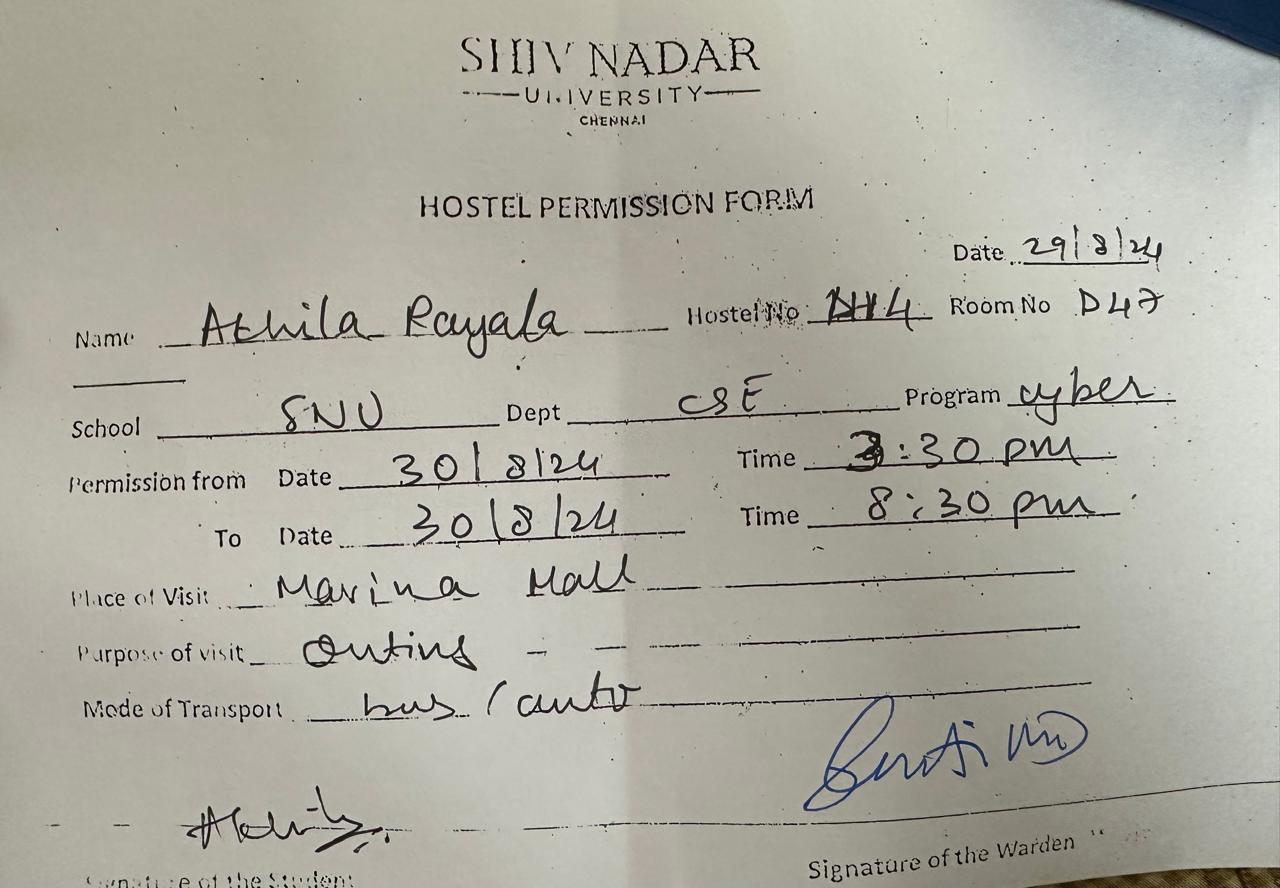 SHIV NADAR
UNIVERSITY
CHENNAI
HOSTEL PERMISSION FORM
Date 29/8/24
Name Athila Rayala Hostel No DH4 Room No D47
School SNU Dept CSE Program cyber
Permission from Date 30/8/24 Time 3:30 pm
To Date 30/8/24 Time 8:30 pm
Place of Visit Marina Mall
Purpose of visit Outing
Mode of Transport bus / auto
Signature of the Warden
Signature of the Student